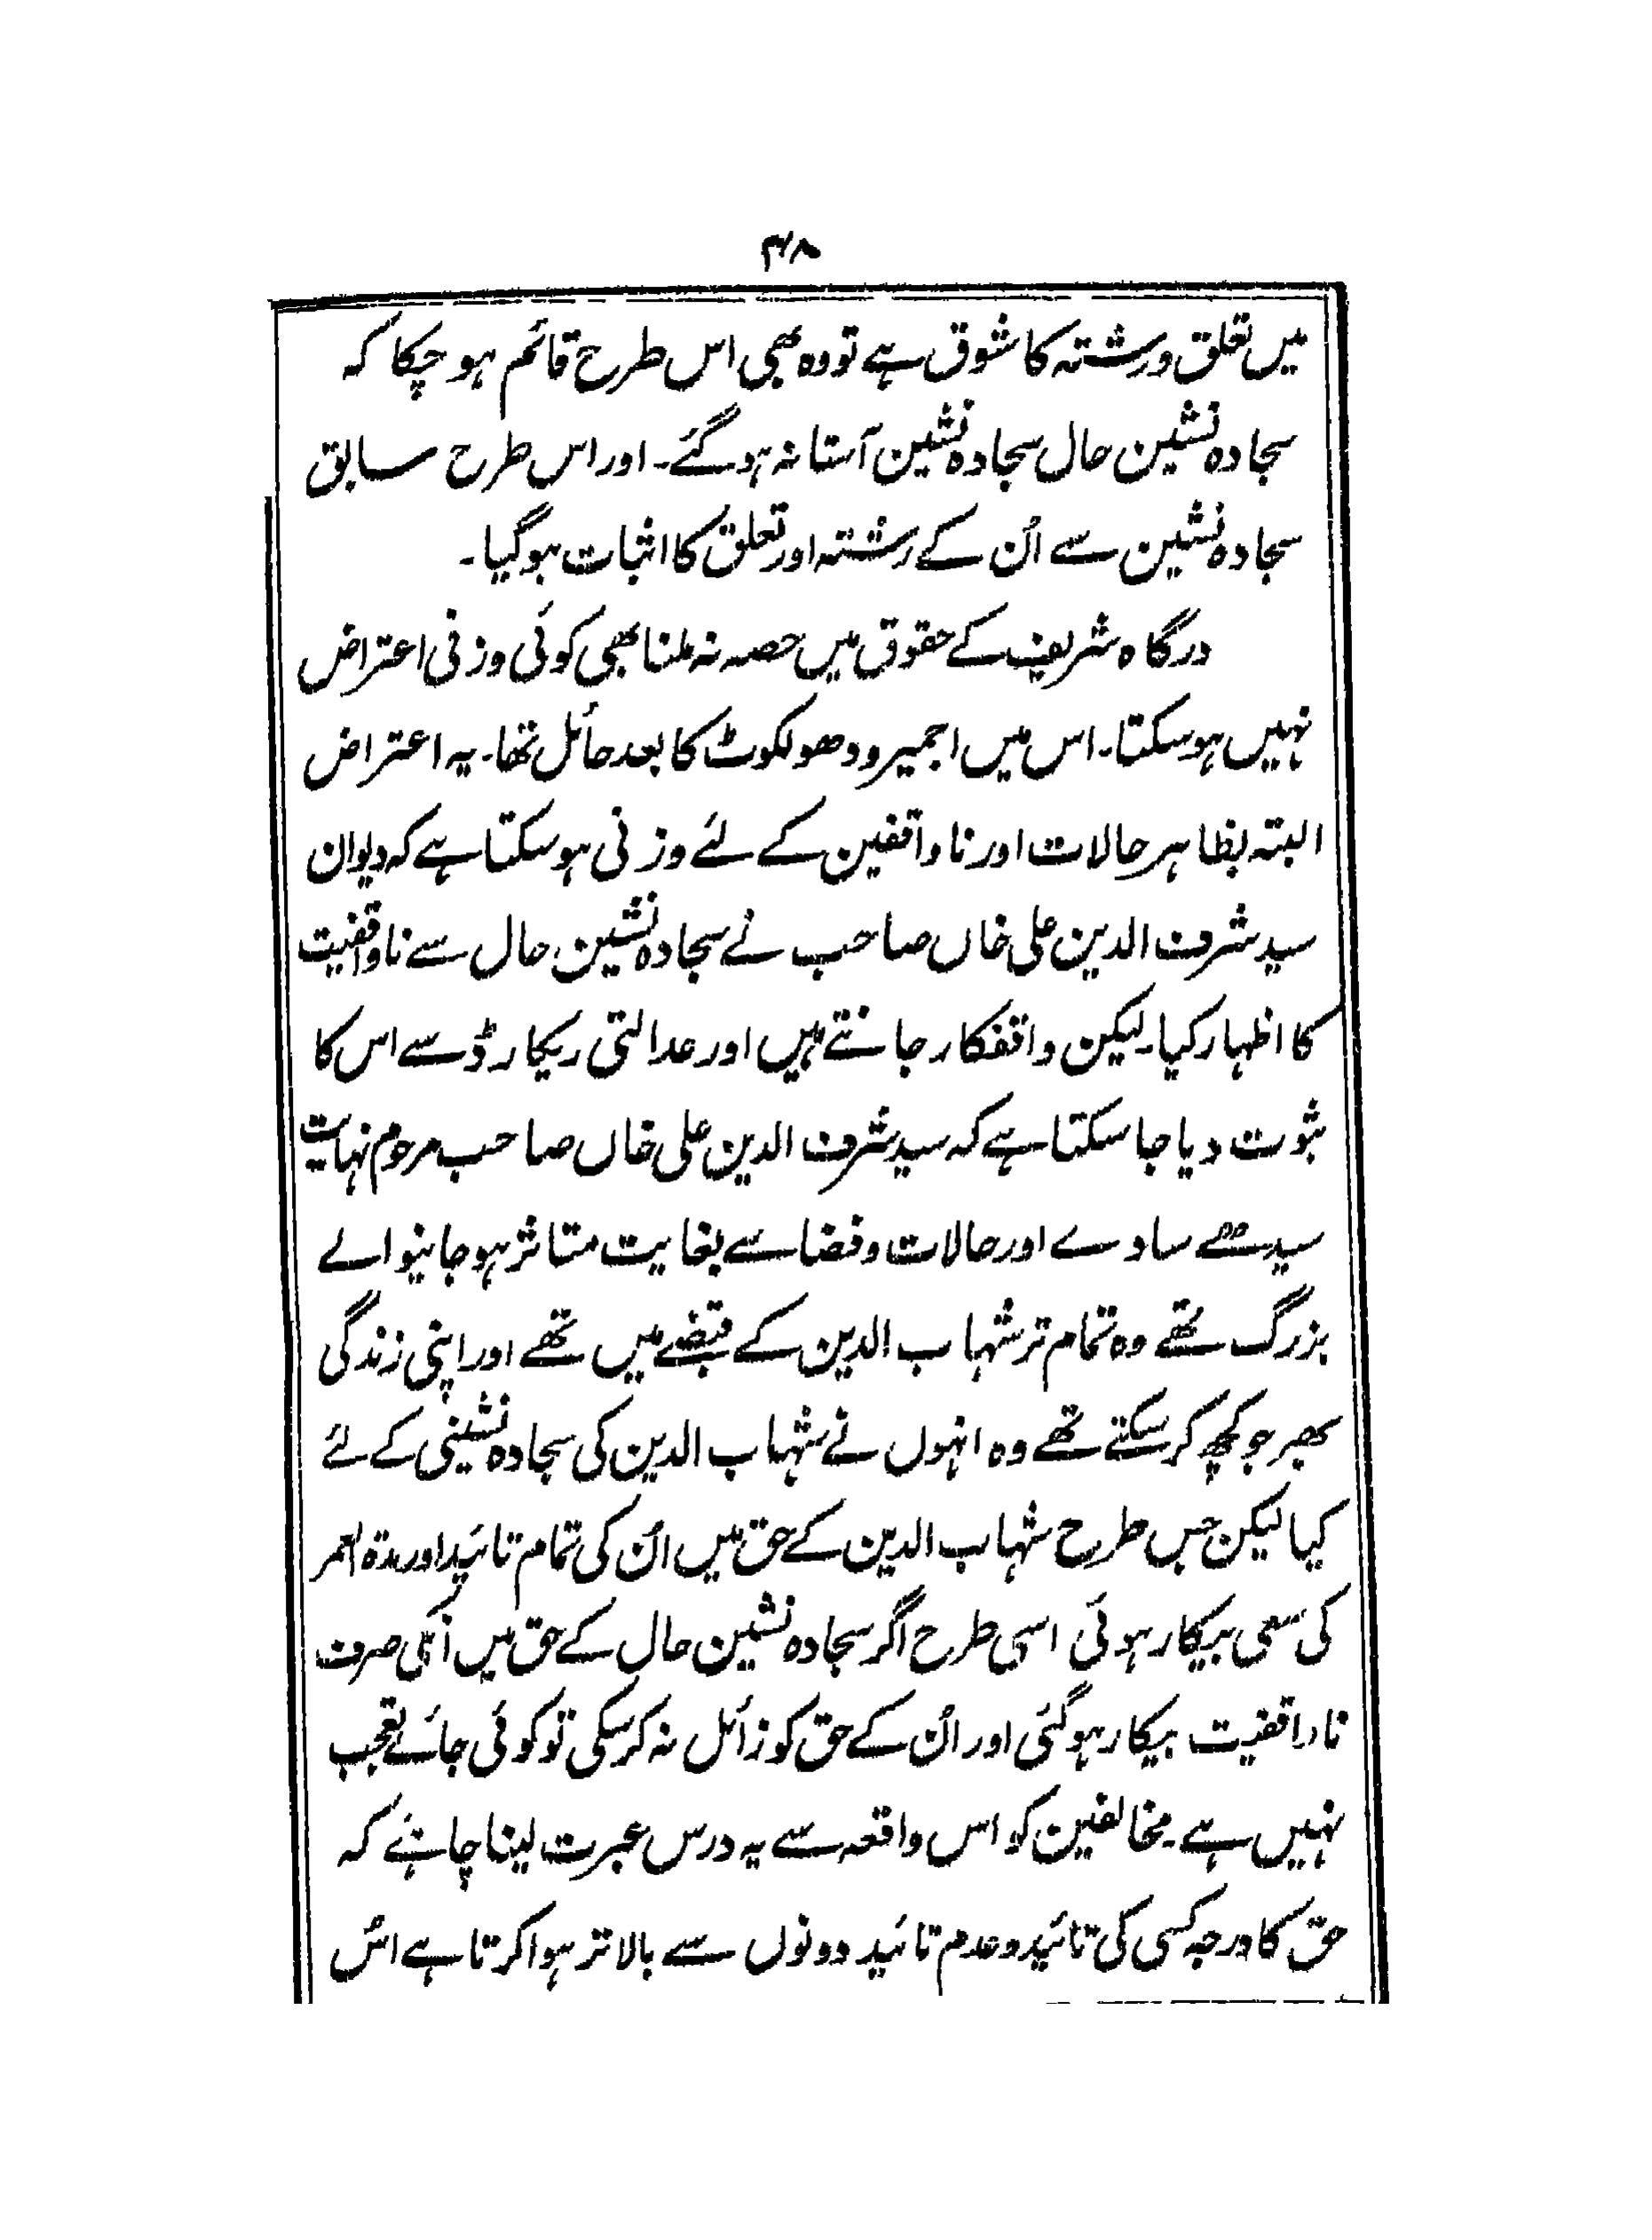 ۳۸
میں تعلق ورشتہ کا شوق ہے تو وہ بھی اس طرح قائم ہو چکا کہ
سجادہ نشین حال سجادہ نشین آستانہ ہو گئے۔ اور اس طرح سابق
سجادہ نشین سے اُن کے رشتہ اور تعلق کا اثبات ہو گیا۔
درگاہ شریف کے حقوق میں حصہ نہ ملنا بھی کوئی وزنی اعتراض
نہیں ہو سکتا۔ اس میں اجمیر و دھولکوٹ کا بعد حائل تھا۔ یہ اعتراض
البتہ بظاہر حالات اور ناواقفین کے لئے وزنی ہو سکتا ہے کہ دیوان
سید شرف الدین علی خاں صاحب نے سجادہ نشین حال سے ناواقفیت
کا اظہار کیا۔ لیکن واقفکار جانتے ہیں اور عدالتی ریکارڈ سے اس کا
ثبوت دیا جا سکتا ہے کہ سید شرف الدین علی خاں صاحب مرحوم نہایت
سیدھے سادے اور حالات وفضا سے بغایت متاثر ہو جانیوالے
بزرگ تھے وہ تمام تر شہاب الدین کے قبضے میں تھے اور اپنی زندگی
بھر جو کچھ کر سکتے تھے وہ انہوں نے شہاب الدین کی سجادہ نشینی کے لئے
کیا لیکن جس طرح شہاب الدین کے حق میں اُن کی تمام تائید اور مدۃ العمر
کی سعی بیکار ہوئی اسی طرح اگر سجادہ نشین حال کے حق میں اُنکی صرف
ناواقفیت بیکار ہو گئی اور اُن کے حق کو زائل نہ کر سکی تو کوئی جائے تعجب
نہیں ہے۔ مخالفین کو اس واقعہ سے یہ درس عبرت لینا چاہئے کہ
حق کا درجہ کسی کی تائید و عدم تائید دونوں سے بالاتر ہوا کرتا ہے اُس